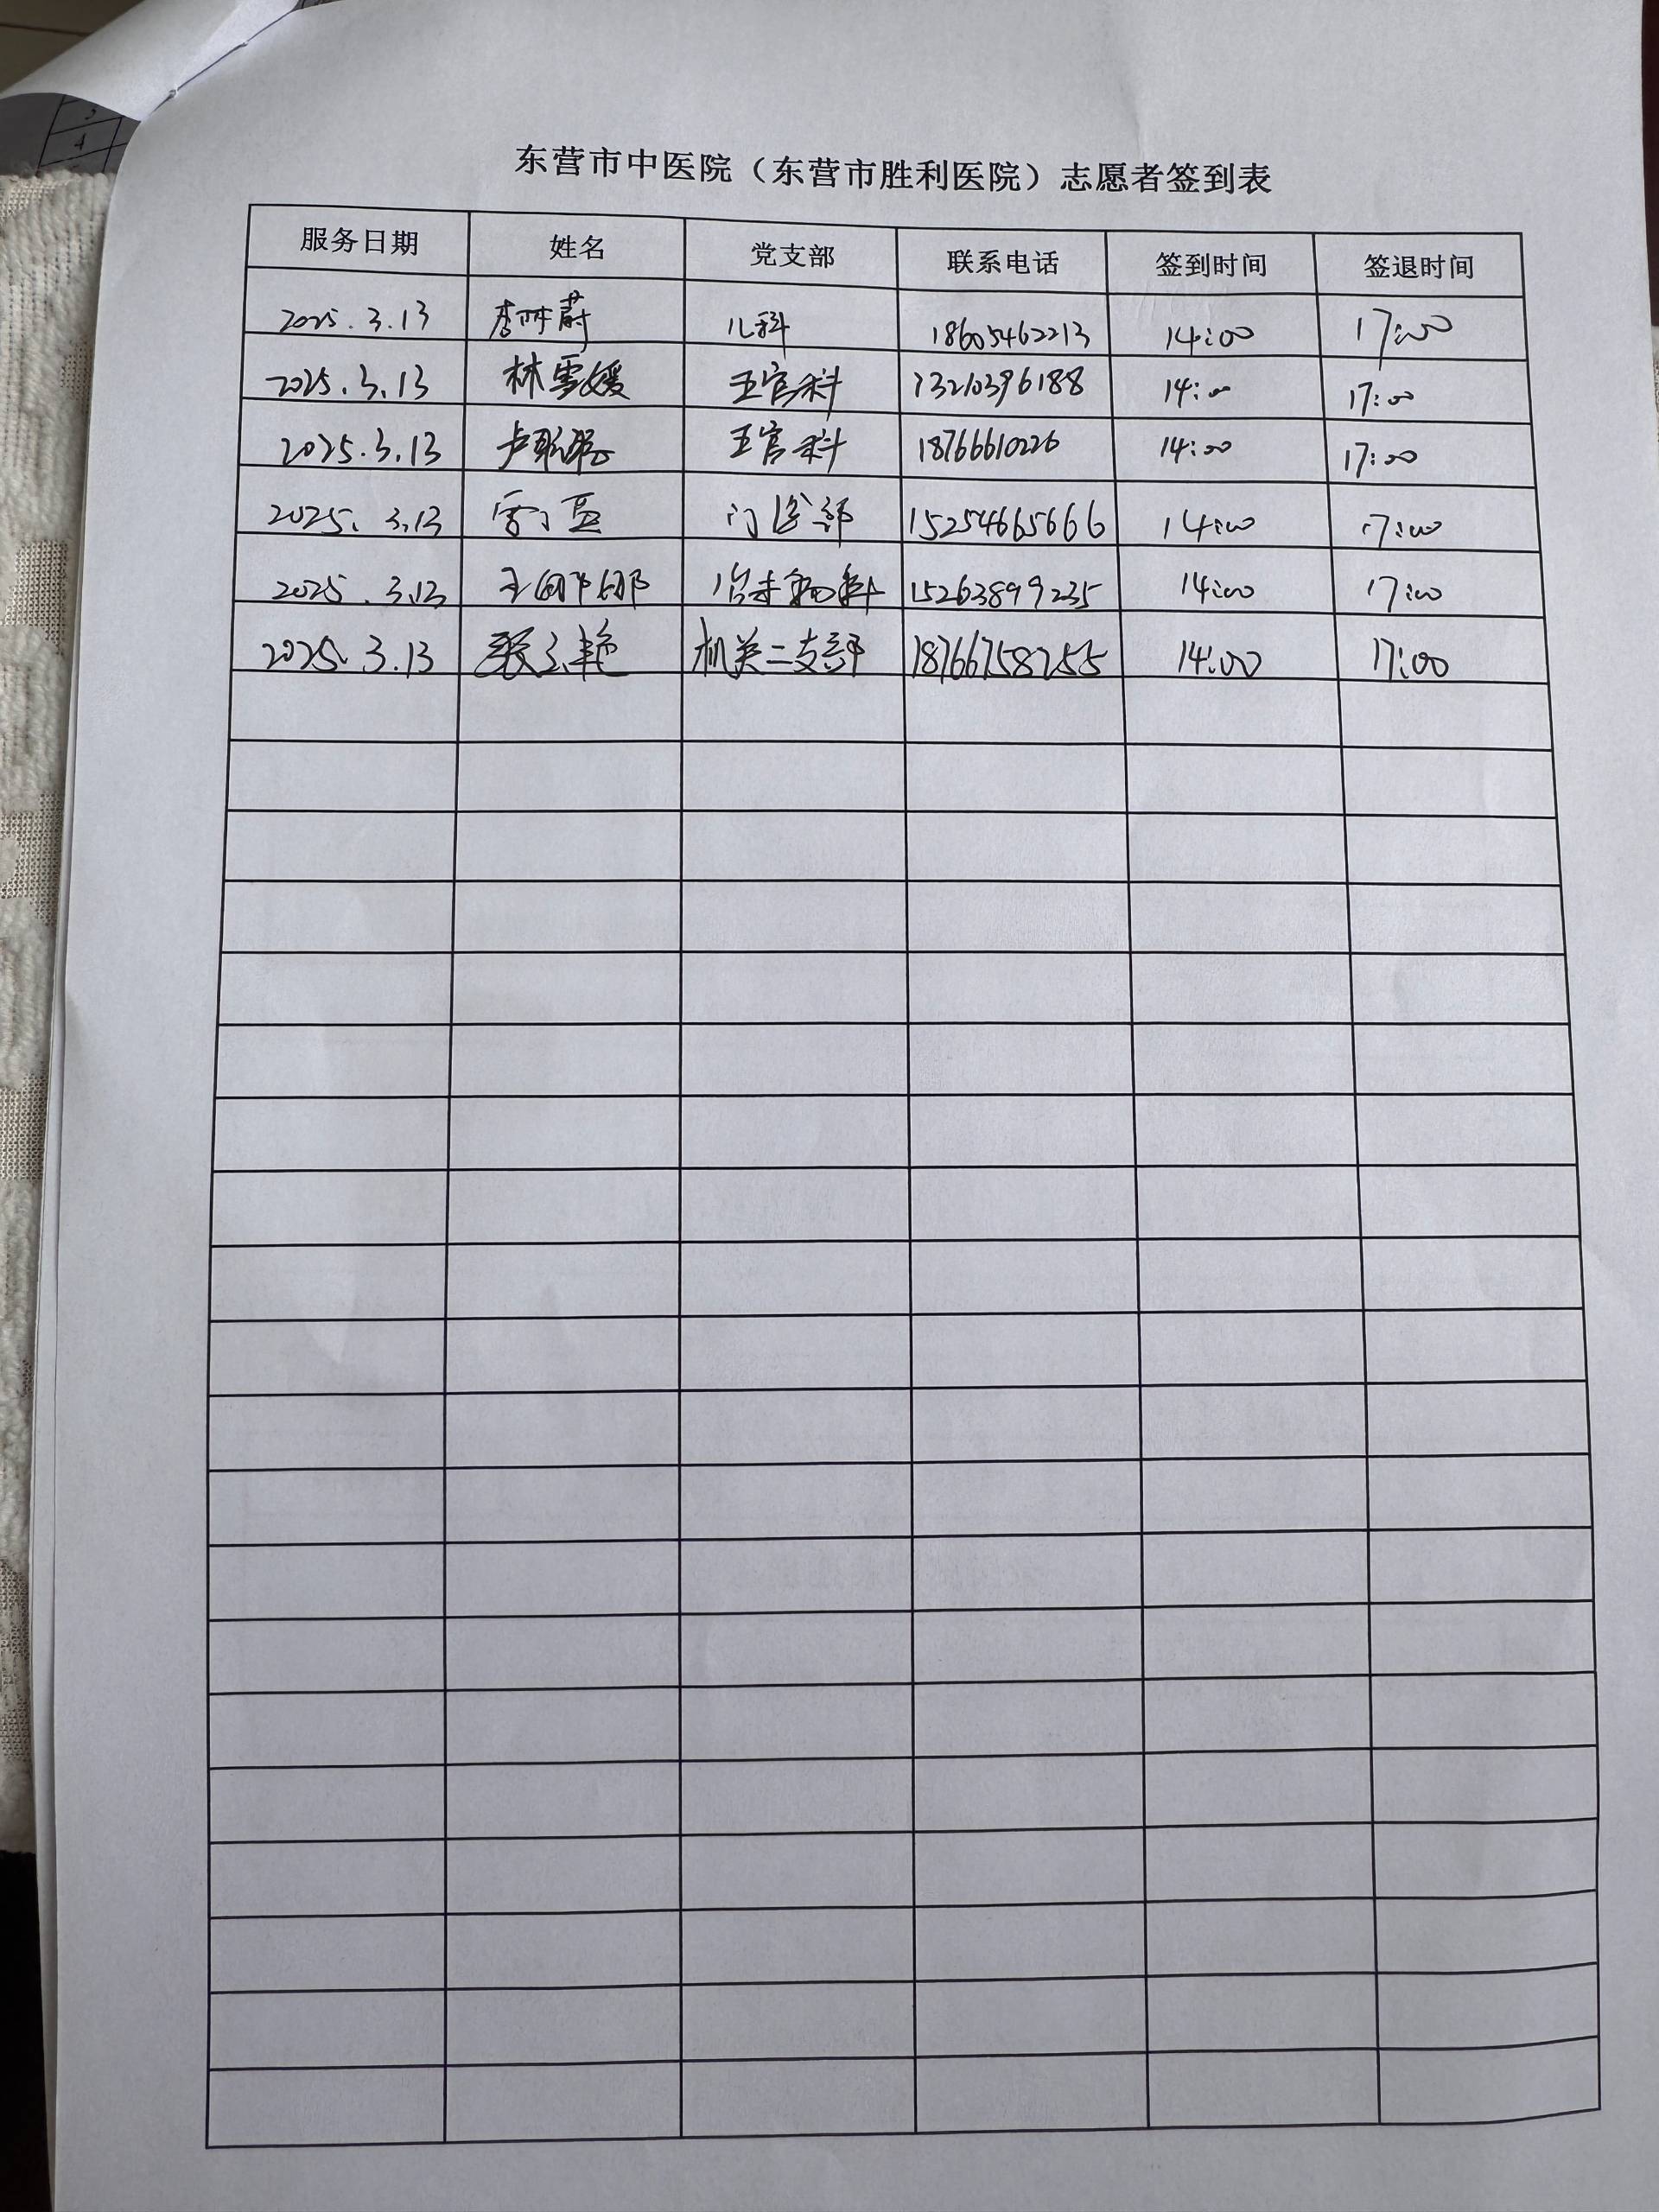 东营市中医院（东营市胜利医院）志愿者签到表
服务日期 姓名 党支部 联系电话 签到时间 签退时间
2025.3.13 儿科 18605462213 14:00 17:00
2025.3.13 林雪媛 五官科 13210396188 14:00 17:00
2025.3.13 五官科 18766610226 14:00 17:00
2025.3.13 门诊部 15254665666 14:00 17:00
2025.3.13 王娜娜 治未病科 15263899235 14:00 17:00
2025.3.13 机关二支部 18766758255 14:00 17:00
4